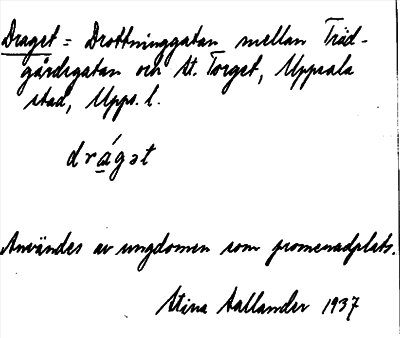 Draget = Drottninggatan mellan Träd-
gårdsgatan och St. Torget, Uppsala
stad, Upps. l.
drágət
Användes av ungdomen som promenadplats.
Stina Hallander 1937